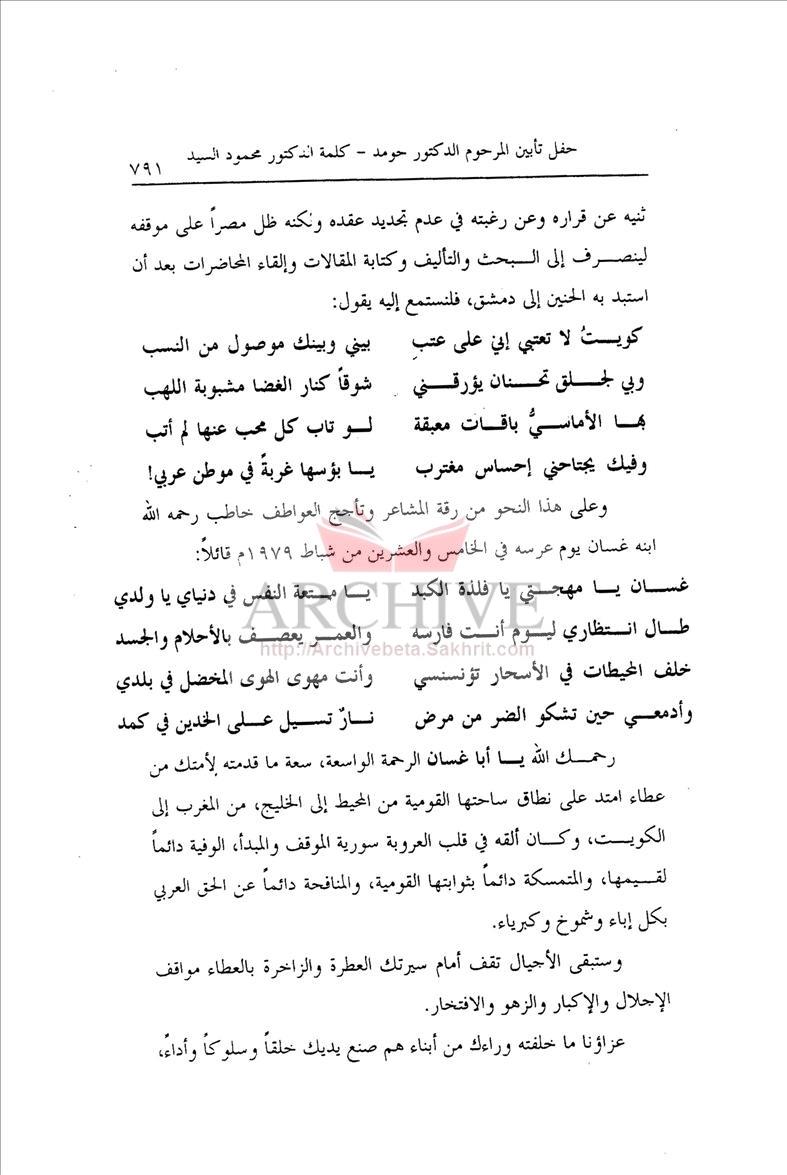 حفل تأبين المرحوم الدكتور حومد – كلمة الدكتور محمود السيد
٧٩١
ثنيه عن قراره وعن رغبته في عدم تجديد عقده ولكنه ظل مصراً على موقفه
لينصرف إلى البحث والتأليف وكتابة المقالات وإلقاء المحاضرات بعد أن
استبد به الحنين إلى دمشق، فلنستمع إليه يقول:
كويتُ لا تعتبي إني على عتب بيني وبينك موصول من النسب
وبي لجلق تحنان يؤرقني شوقاً كنار الغضا مشبوبة اللهب
بها الأماسيُّ باقات معبقة لو تاب كل محب عنها لم أتب
وفيك يجتاحني إحساس مغترب يا بؤسها غربةً في موطن عربي!
وعلى هذا النحو من رقة المشاعر وتأجج العواطف خاطب رحمه الله
ابنه غسان يوم عرسه في الخامس والعشرين من شباط ١٩٧٩م قائلاً:
غسان يا مهجتي يا فلذة الكبد يا متعة النفس في دنياي يا ولدي
ARCHIVE
طال انتظاري ليوم أنت فارسه والعمر يعصف بالأحلام والجسد
http://Archivebeta.Sakhrit.com
خلف المحيطات في الأسحار تؤنسني وأنت مهوى الهوى المخضل في بلدي
وأدمعي حين تشكو الضر من مرض نارٌ تسيل على الخدين في كمد
رحمك الله يا أبا غسان الرحمة الواسعة، سعة ما قدمته لأمتك من
عطاء امتد على نطاق ساحتها القومية من المحيط إلى الخليج، من المغرب إلى
الكويت، وكان ألقه في قلب العروبة سورية الموقف والمبدأ، الوفية دائماً
لقيمها، والمتمسكة دائماً بثوابتها القومية، والمنافحة دائماً عن الحق العربي
بكل إباء وشموخ وكبرياء.
وستبقى الأجيال تقف أمام سيرتك العطرة والزاخرة بالعطاء مواقف
الإجلال والإكبار والزهو والافتخار.
عزاؤنا ما خلفته وراءك من أبناء هم صنع يديك خلقاً وسلوكاً وأداءً،